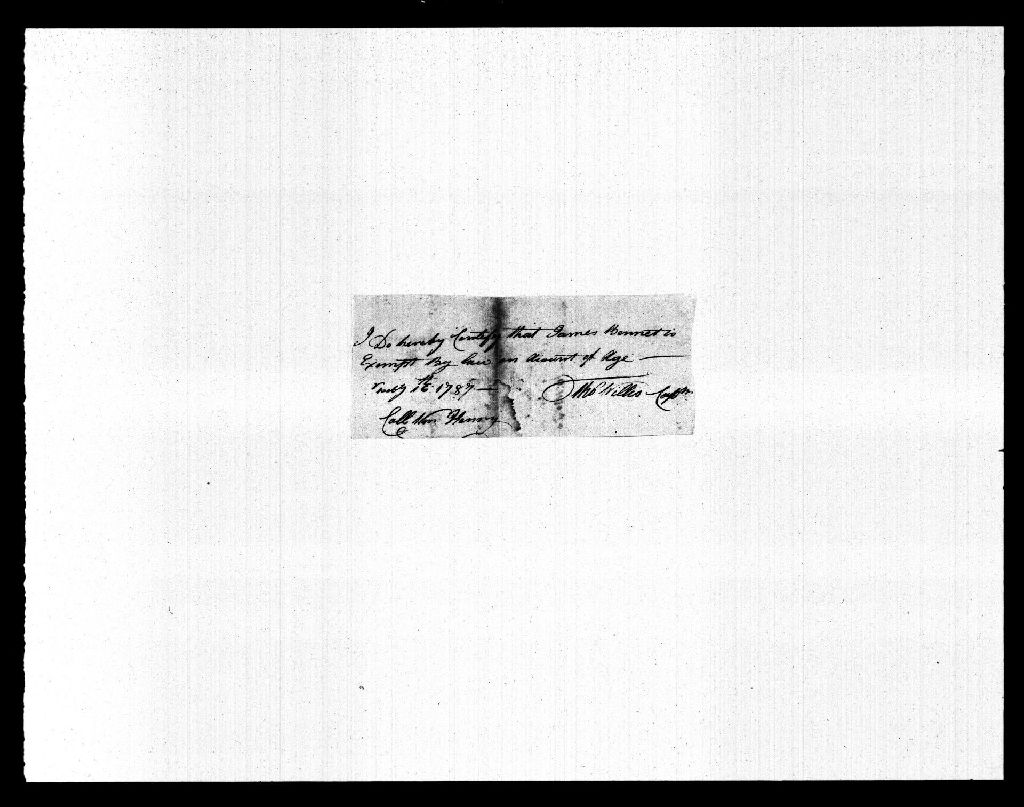 I Do hereby Certify that James Bennet is
Exempt By law on Account of Age —
1789 — Thos Willis Captn
Coll Wm Henry